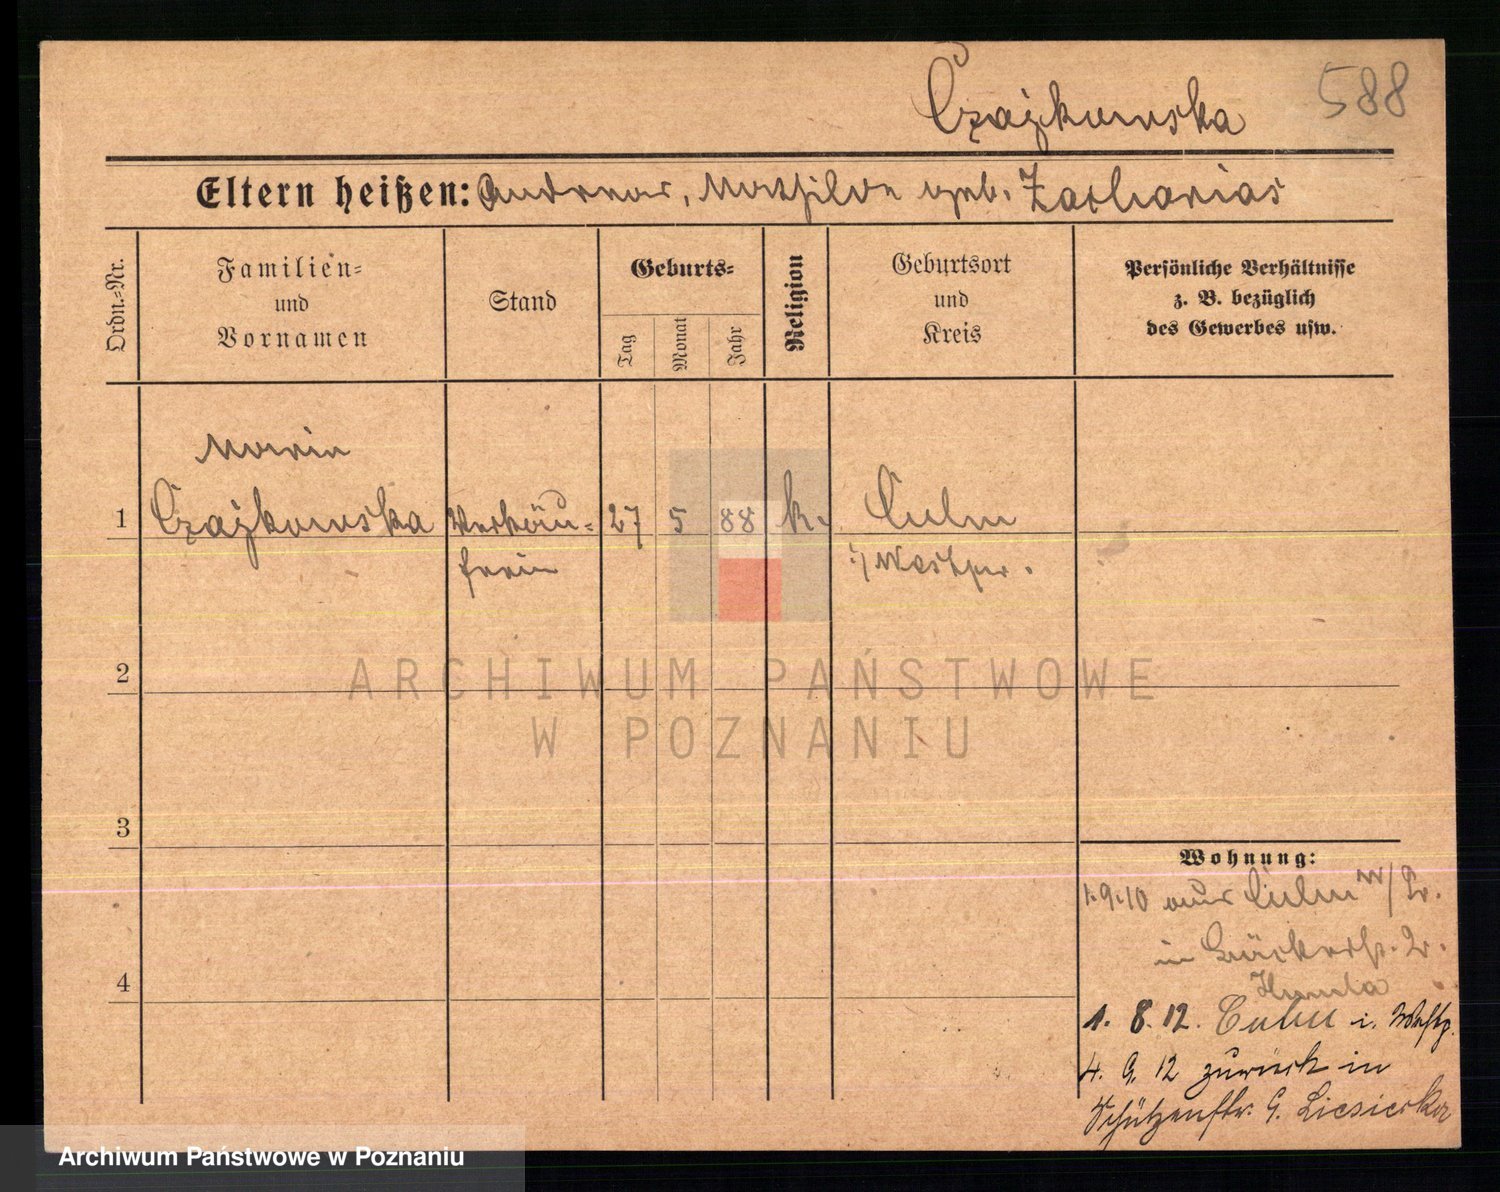 588
Czajkowska
Eltern heißen: Andreas, Mathilde geb. Zacharias
Ordn.-Nr.
Familien-
und
Vornamen
Stand
Geburts-
Tag
Monat
Jahr
Religion
Geburtsort
und
Kreis
Persönliche Verhältnisse
z. B. bezüglich
des Gewerbes usw.
Maria
1 Czajkowska Verkäu- 27 5 88 k. Culm
ferin i/Westpr.
2
3
4
Wohnung:
1.9.10 aus Culm W/Pr.
in Bäckerstr. 2.
1. 8. 12. Culm i. Westp.
4. 9. 12 zurück in
Schützenstr. 9.
ARCHIWUM PAŃSTWOWE
W POZNANIU
Archiwum Państwowe w Poznaniu